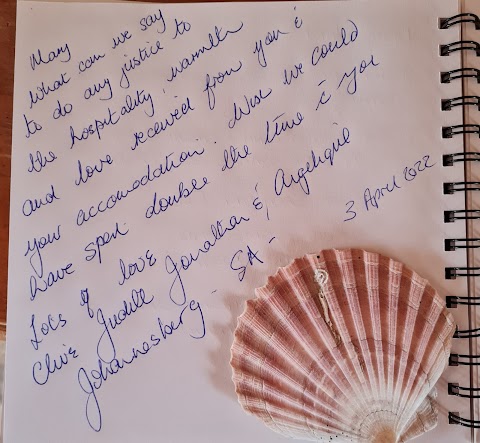 Mary
what can we say
to do any justice to
the hospitality, warmth
and love received from you &
your accomodation. Wish we could
have spent double the time & you
Lots of love
Clive Judith Jonathan & Angelique
Johannesberg - SA -
3 April 2022